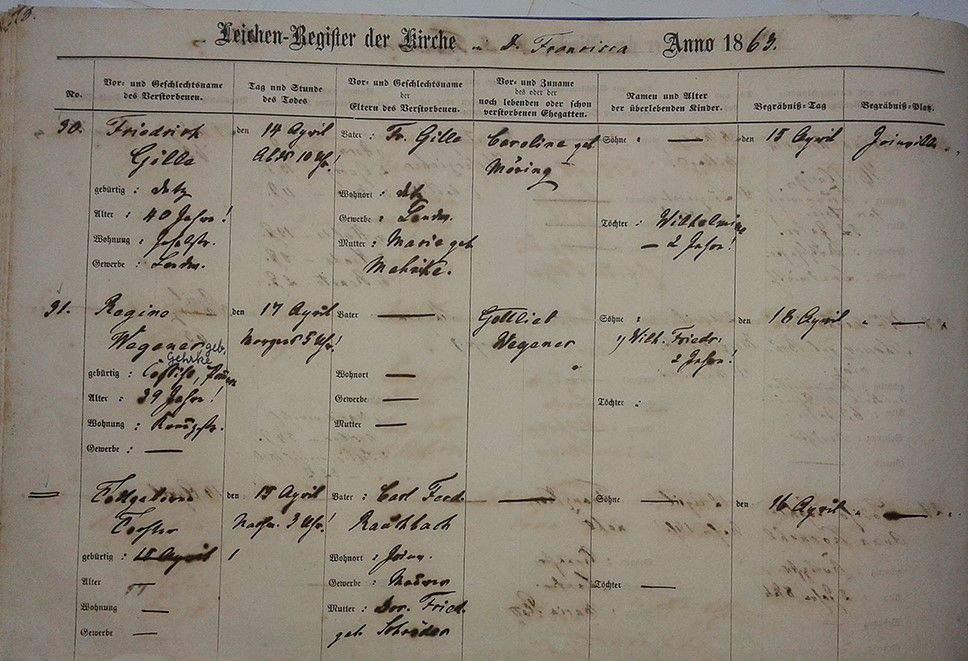 Leichen-Register der Kirche in D. Francisca Anno 1863.
No.
Vor- und Geschlechtsname
des Verstorbenen.
Tag und Stunde
des Todes
Vor- und Geschlechtsname
der
Eltern des Verstorbenen.
Vor- und Zuname
des oder der
noch lebenden oder schon
verstorbenen Ehegatten.
Namen und Alter
der überlebenden Kinder.
Begräbniß-Tag
Begräbniß-Platz.
30.
Friedrich
Gille
gebürtig :
Alter : 40 Jahre!
Wohnung :
Gewerbe : Landm.
den 14 April
Abds 10 Uhr!
Vater : Fr. Gille
Wohnort :
Gewerbe : Landm.
Mutter : Marie geb
Caroline geb
Möring
Söhne : —
Töchter : Wilhelmine
– 2 Jahre!
den 15 April
Joinville.
31.
Regine
Wegener geb.
Gehrke
gebürtig :
Alter : 39 Jahre!
Wohnung :
Gewerbe : —
den 17 April
Morgens 5 Uhr!
Vater —
Wohnort —
Gewerbe —
Mutter —
Gottlieb
Wegener
Söhne :
Wilh. Friedr.
2 Jahre!
Töchter :
den 18 April
" — "
=
Todtgeborene
Tochter
gebürtig : 15 April !
Alter
Wohnung —
Gewerbe —
den 15 April
Nachm. 3 Uhr!
Vater : Carl Ferd.
Raethbach
Wohnort : Joinv.
Gewerbe : Maurer
Mutter : Dor. Fried.
geb Schröder
—
Söhne —
Töchter —
den 16 April
" — "